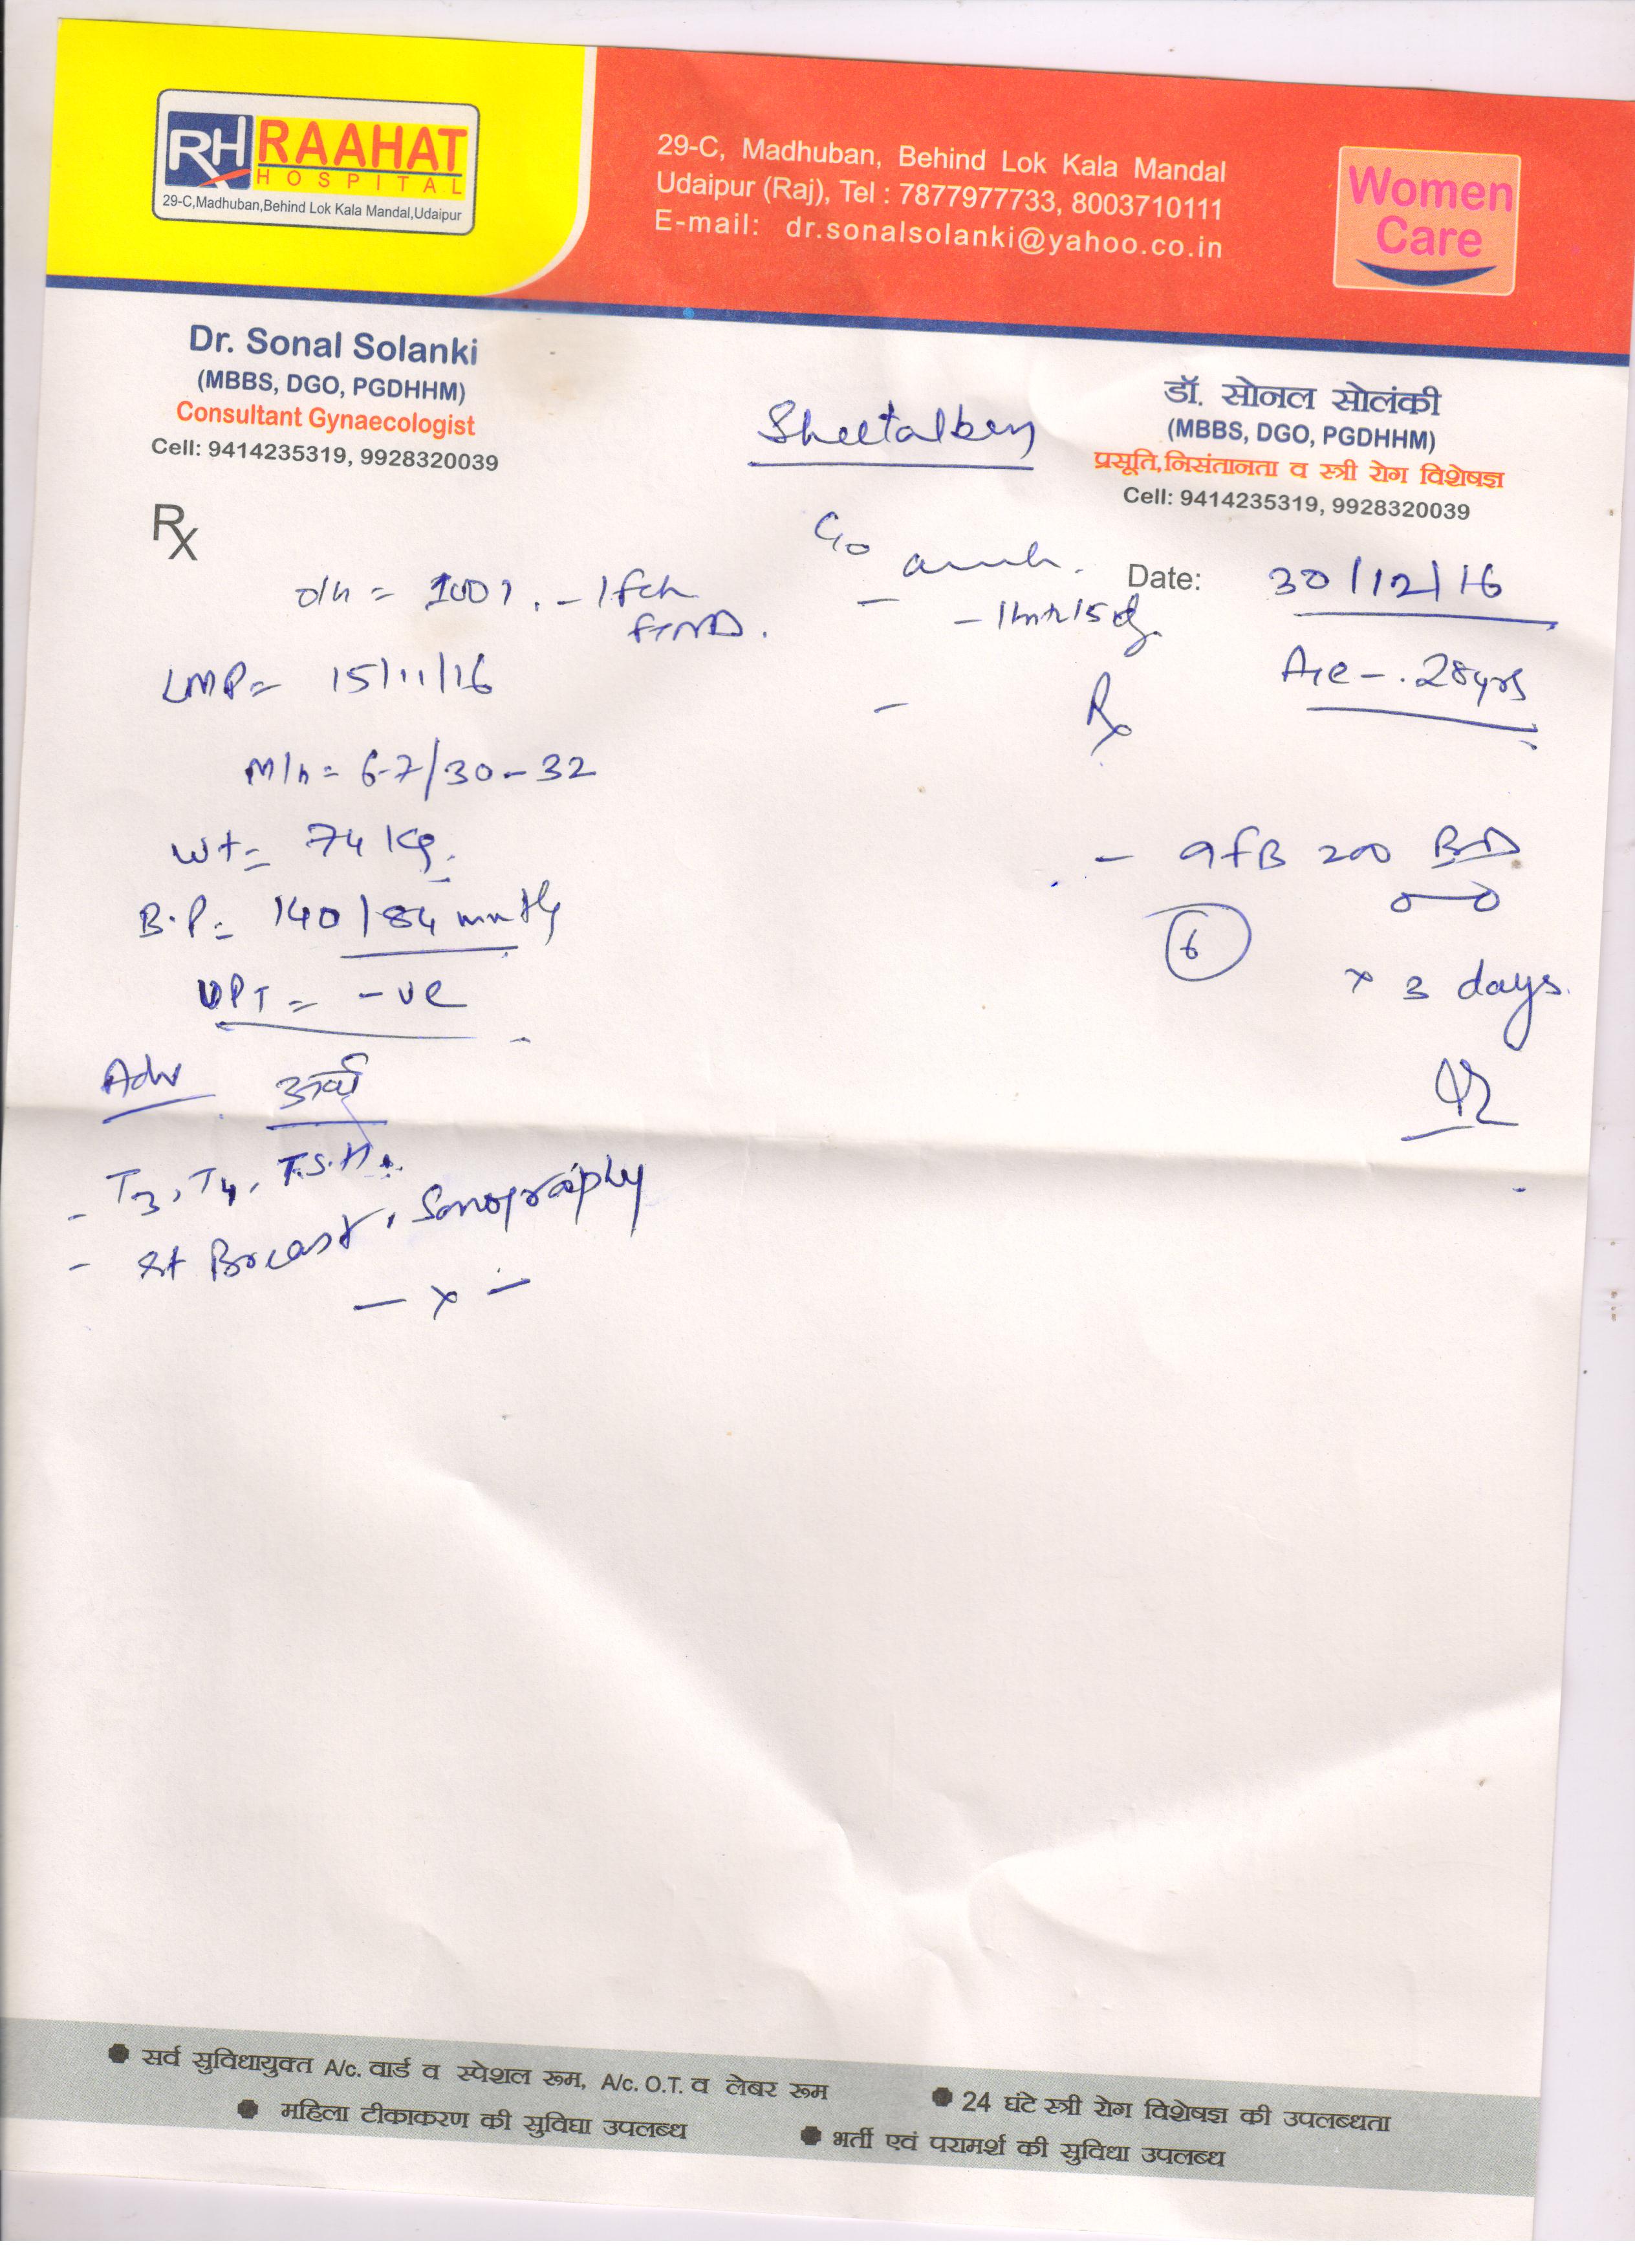 RH RAAHAT
HOSPITAL
29-C,Madhuban,Behind Lok Kala Mandal,Udaipur
29-C, Madhuban, Behind Lok Kala Mandal
Udaipur (Raj), Tel : 7877977733, 8003710111
E-mail: dr.sonalsolanki@yahoo.co.in
Women
Care
Dr. Sonal Solanki
(MBBS, DGO, PGDHHM)
Consultant Gynaecologist
Cell: 9414235319, 9928320039
Sheetalben
डॉ. सोनल सोलंकी
(MBBS, DGO, PGDHHM)
प्रसूति,निसंतानता व स्त्री रोग विशेषज्ञ
Cell: 9414235319, 9928320039
Rx
C/o
Date: 30/12/16
O/h = - 1 fch
FTND.
- 1mt 15d
LMP = 15/11/16
Age - 28yrs
Rx
M/h = 6-7/30-32
Wt = 74 Kg.
B.P = 140/84 mmHg
UPT = -ve
- BD
6
x 3 days.
Adv
- T3, T4, T.S.H.
- Rt Breast, Sonography
- x -
सर्व सुविधायुक्त A/c. वार्ड व स्पेशल रूम, A/c. O.T. व लेबर रूम
24 घंटे स्त्री रोग विशेषज्ञ की उपलब्धता
महिला टीकाकरण की सुविधा उपलब्ध
भर्ती एवं परामर्श की सुविधा उपलब्ध